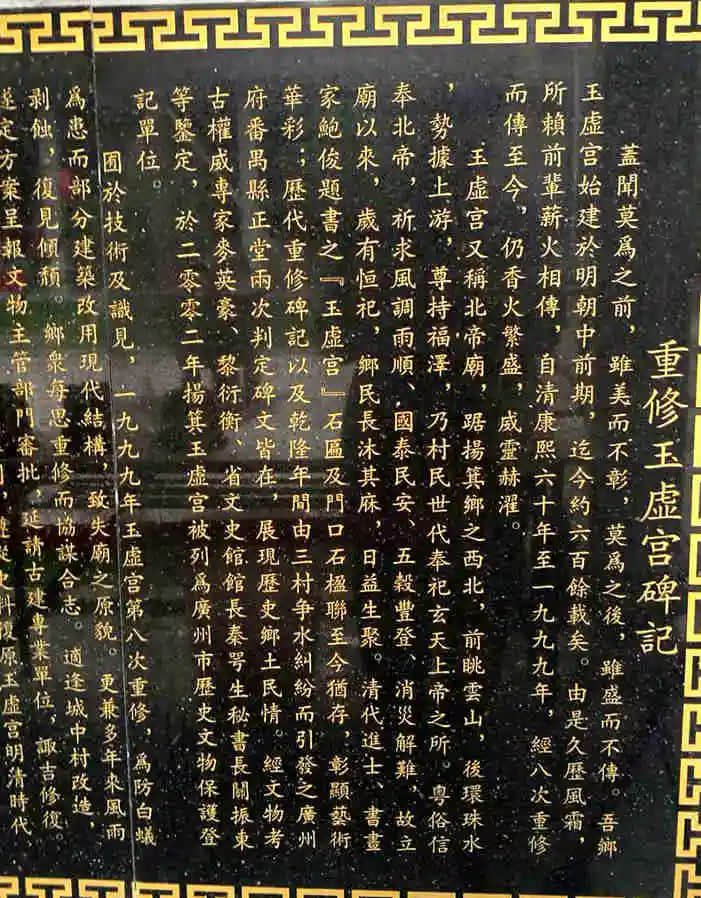 重修玉虛宮碑記
蓋聞莫爲之前，雖美而不彰，莫爲之後，雖盛而不傳。吾鄉
玉虛宮始建於明朝中前期，迄今約六百餘載矣。由是久歷風霜，
所賴前輩薪火相傳，自清康熙六十年至一九九九年，經八次重修
而傳至今，仍香火繁盛，威靈赫濯。
玉虛宮又稱北帝廟，踞揚箕鄉之西北，前眺雲山，後環珠水
，勢據上游，尊持福澤，乃村民世代奉祀玄天上帝之所。粵俗信
奉北帝，祈求風調雨順、國泰民安、五穀豐登、消災解難，故立
廟以來，歲有恒祀，鄉民長沐其庥，日益生聚。清代進士、書畫
家鮑俊題書之『玉虛宮』石匾及門口石楹聯至今猶存，彰顯藝術
華彩；歷代重修碑記以及乾隆年間由三村争水糾紛而引發之廣州
府番禺縣正堂兩次判定碑文皆在，展現歷史鄉土民情。經文物考
古權威專家麥英豪、黎衍衡、省文史館館長秦咢生秘書長關振東
等鑒定，於二零零二年揚箕玉虛宮被列爲廣州市歷史文物保護登
記單位。
囿於技術及識見，一九九九年玉虛宮第八次重修，爲防白蟻
爲患而部分建築改用現代結構，致失廟之原貌。更兼多年來風雨
剥蝕，復見傾頹。鄉衆每思重修而協謀合志。適逢城中村改造，
遂定方案呈報文物主管部門審批，延請古建專業單位，諏吉修復。
料復原玉虛宮明清時代